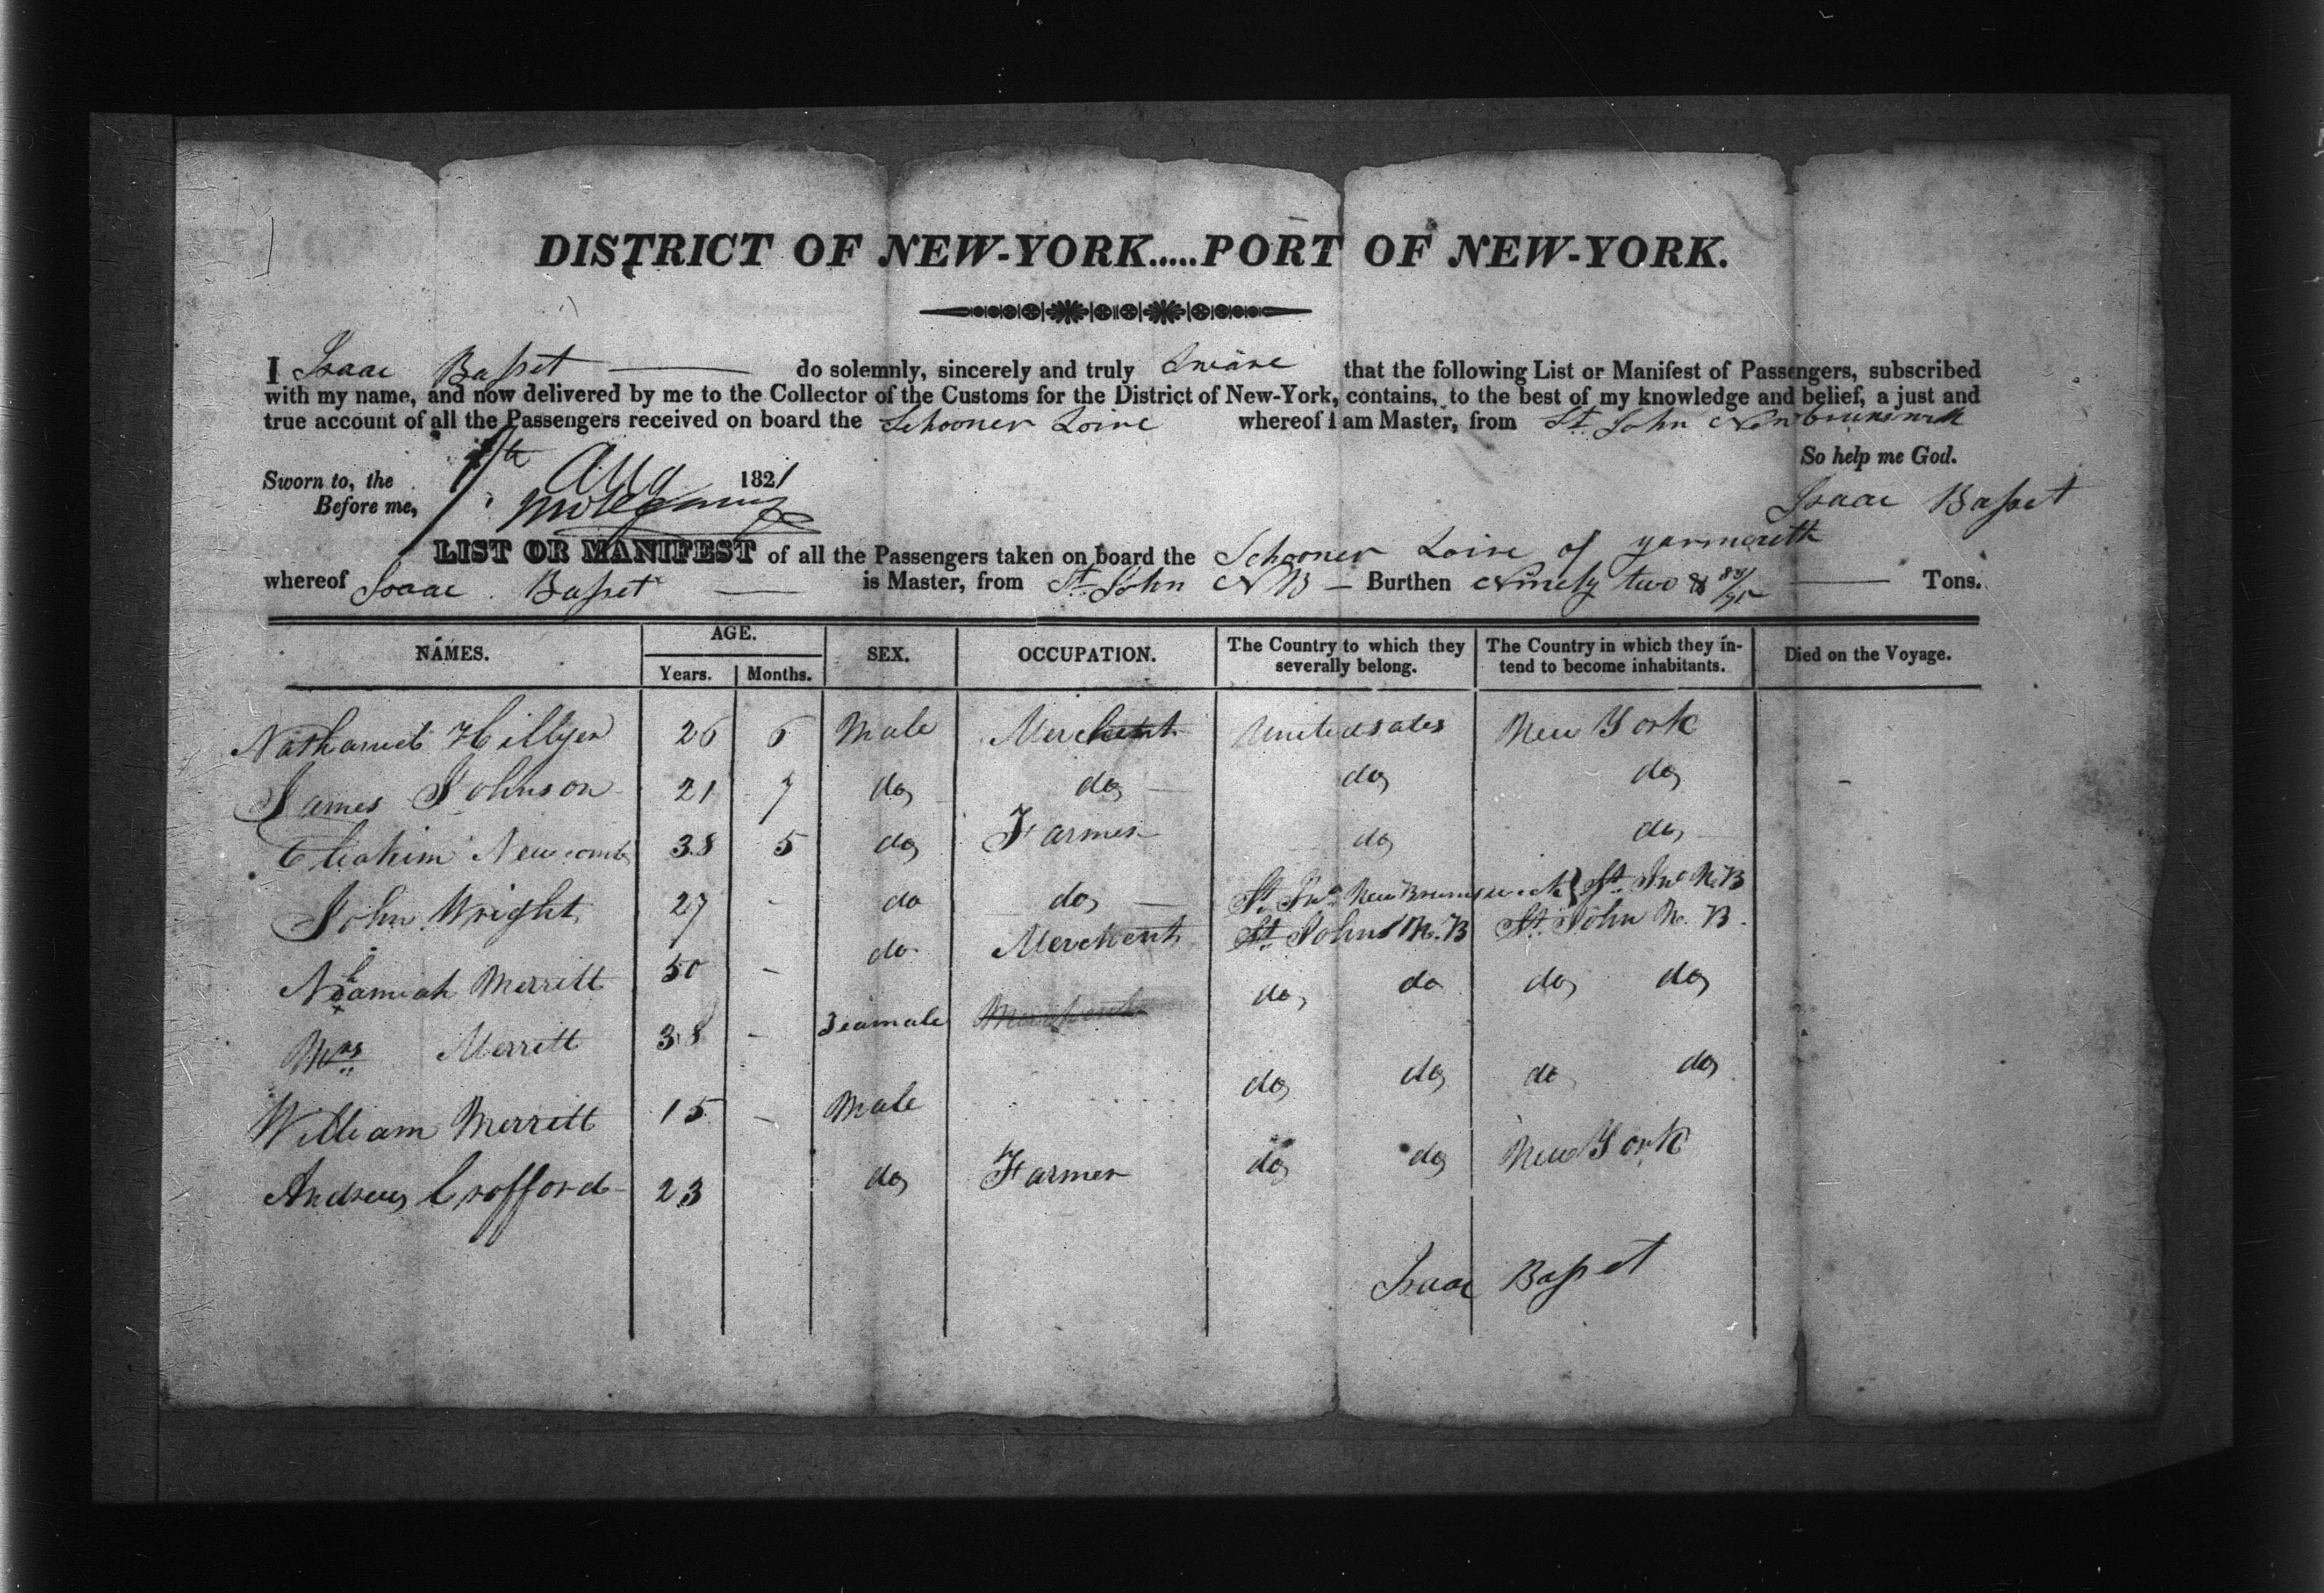 DISTRICT OF NEW-YORK.....PORT OF NEW-YORK.
I Isaac Basset do solemnly, sincerely and truly Sware that the following List or Manifest of Passengers, subscribed
with my name, and now delivered by me to the Collector of the Customs for the District of New-York, contains, to the best of my knowledge and belief, a just and
true account of all the Passengers received on board the Schooner Loire whereof I am Master, from St. John Newbrunswick
So help me God.
Sworn to, the Aug 1821
Before me,
Isaac Basset
LIST OR MANIFEST of all the Passengers taken on board the Schooner Loire of yarmouth
whereof Isaac Basset is Master, from St. John NB — Burthen Ninety two Tons.
NAMES. AGE. Years. Months. SEX. OCCUPATION. The Country to which they severally belong. The Country in which they intend to become inhabitants. Died on the Voyage.
Nathaniel Hillyer 26 6 Male Merchent Unitedsates New York
James Johnson 21 7 do do do do
Eliakim Newcomb 38 5 do Farmer do do
John Wright 27 - do do St. Jno New Brunswick St. Jno N.B
Nehamiah Merritt 50 - do Merchent St. John N.B St. John N.B.
Mrs Merritt 38 - Feamale Merchent do do do do
William Merritt 15 - Male do do do do
Andrew Crofford 23 do Farmer do do New York
Isaac Basset